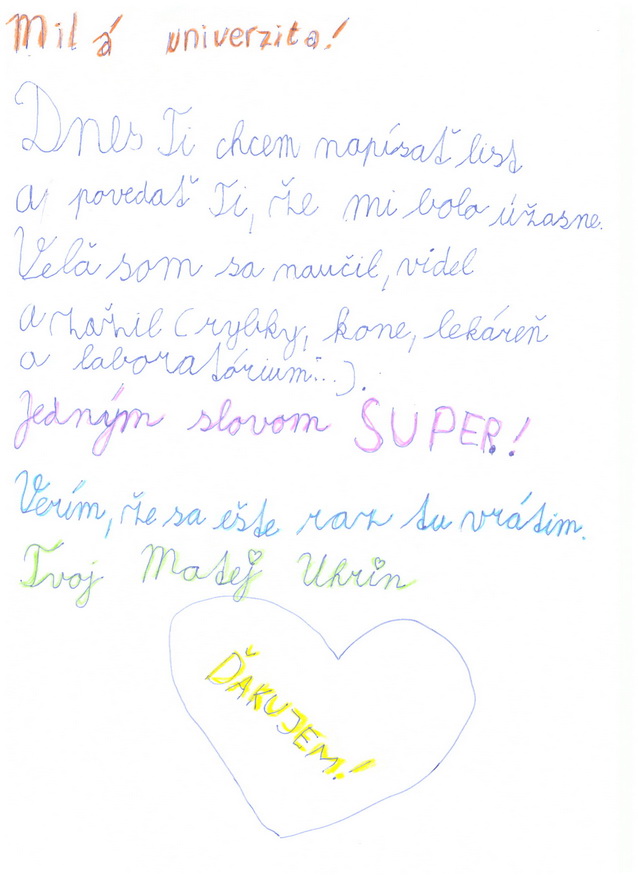 Milá univerzita!
Dnes Ti chcem napísať list
aj povedať Ti, že mi bolo úžasne.
Veľa som sa naučil, videl
a zažil (rybky, kone, lekáreň
a laboratórium...).
Jedným slovom SUPER!
Verím, že sa ešte raz tu vrátim.
Tvoj Matej Uhrin
ĎAKUJEM!